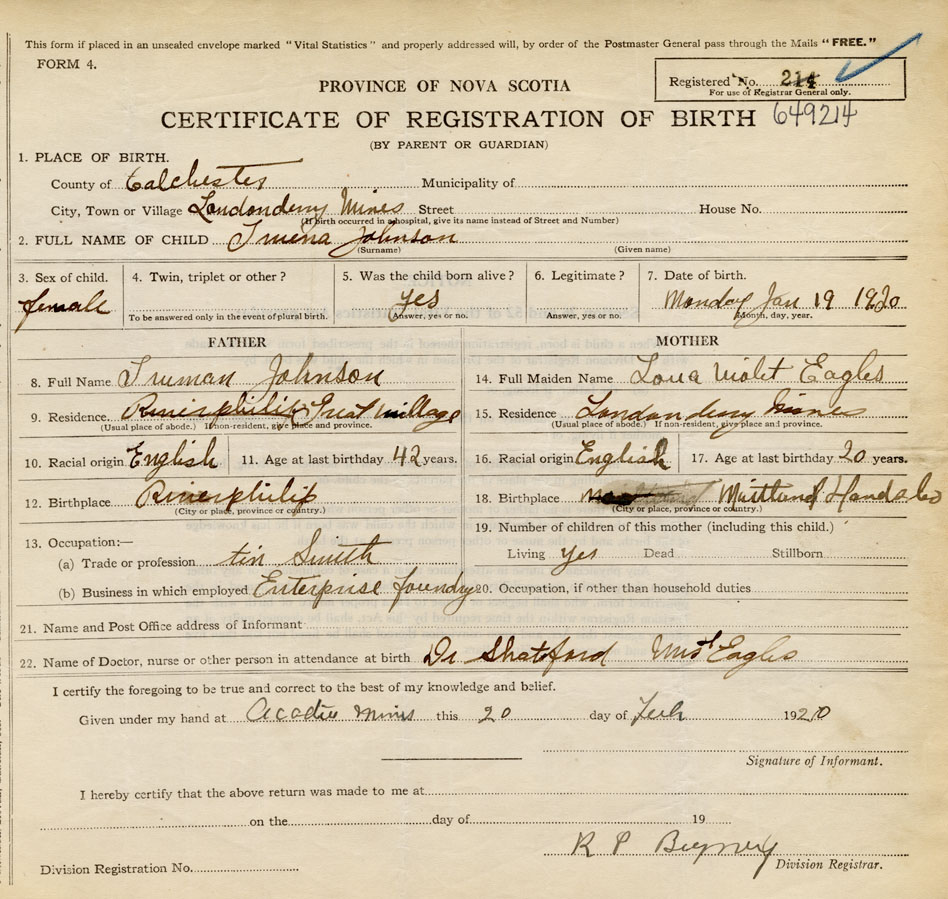 This form if placed in an unsealed envelope marked "Vital Statistics" and properly addressed will, by order of the Postmaster General pass through the Mails "FREE."
FORM 4.
Registered No. 214
For use of Registrar General only.
PROVINCE OF NOVA SCOTIA
CERTIFICATE OF REGISTRATION OF BIRTH 649214
(BY PARENT OR GUARDIAN)
1. PLACE OF BIRTH.
County of Calchester Municipality of
City, Town or Village Londonderry Mines Street House No.
(If birth occurred in a hospital, give its name instead of Street and Number)
2. FULL NAME OF CHILD Johnson
(Surname) (Given name)
3. Sex of child. 4. Twin, triplet or other? 5. Was the child born alive? 6. Legitimate? 7. Date of birth.
female yes Monday Jan 19 1920
To be answered only in the event of plural birth. (Answer, yes or no. Answer, yes or no. Month, day, year.
FATHER MOTHER
8. Full Name Truman Johnson 14. Full Maiden Name Violet Eagles
9. Residence. Riverphilip Great village 15. Residence Londonderry Mines
(Usual place of abode.) If non-resident, give place and province. (Usual place of abode.) If non-resident, give place and province.
10. Racial origin English 11. Age at last birthday 42 years. 16. Racial origin English 17. Age at last birthday 20 years.
12. Birthplace Riverphilip 18. Birthplace Maitland Hands Co
(City or place, province or country.) (City or place, province or country.)
19. Number of children of this mother (including this child.)
13. Occupation:—
(a) Trade or profession tin Smith Living yes Dead Stillborn
(b) Business in which employed Enterprise foundry 20. Occupation, if other than household duties
21. Name and Post Office address of Informant
22. Name of Doctor, nurse or other person in attendance at birth Dr Shatford Mrs Eagles
I certify the foregoing to be true and correct to the best of my knowledge and belief.
Given under my hand at Acadia mines this 20 day of Feb 1920
Signature of Informant.
I hereby certify that the above return was made to me at
on the day of 19
R P
Division Registration No. Division Registrar.